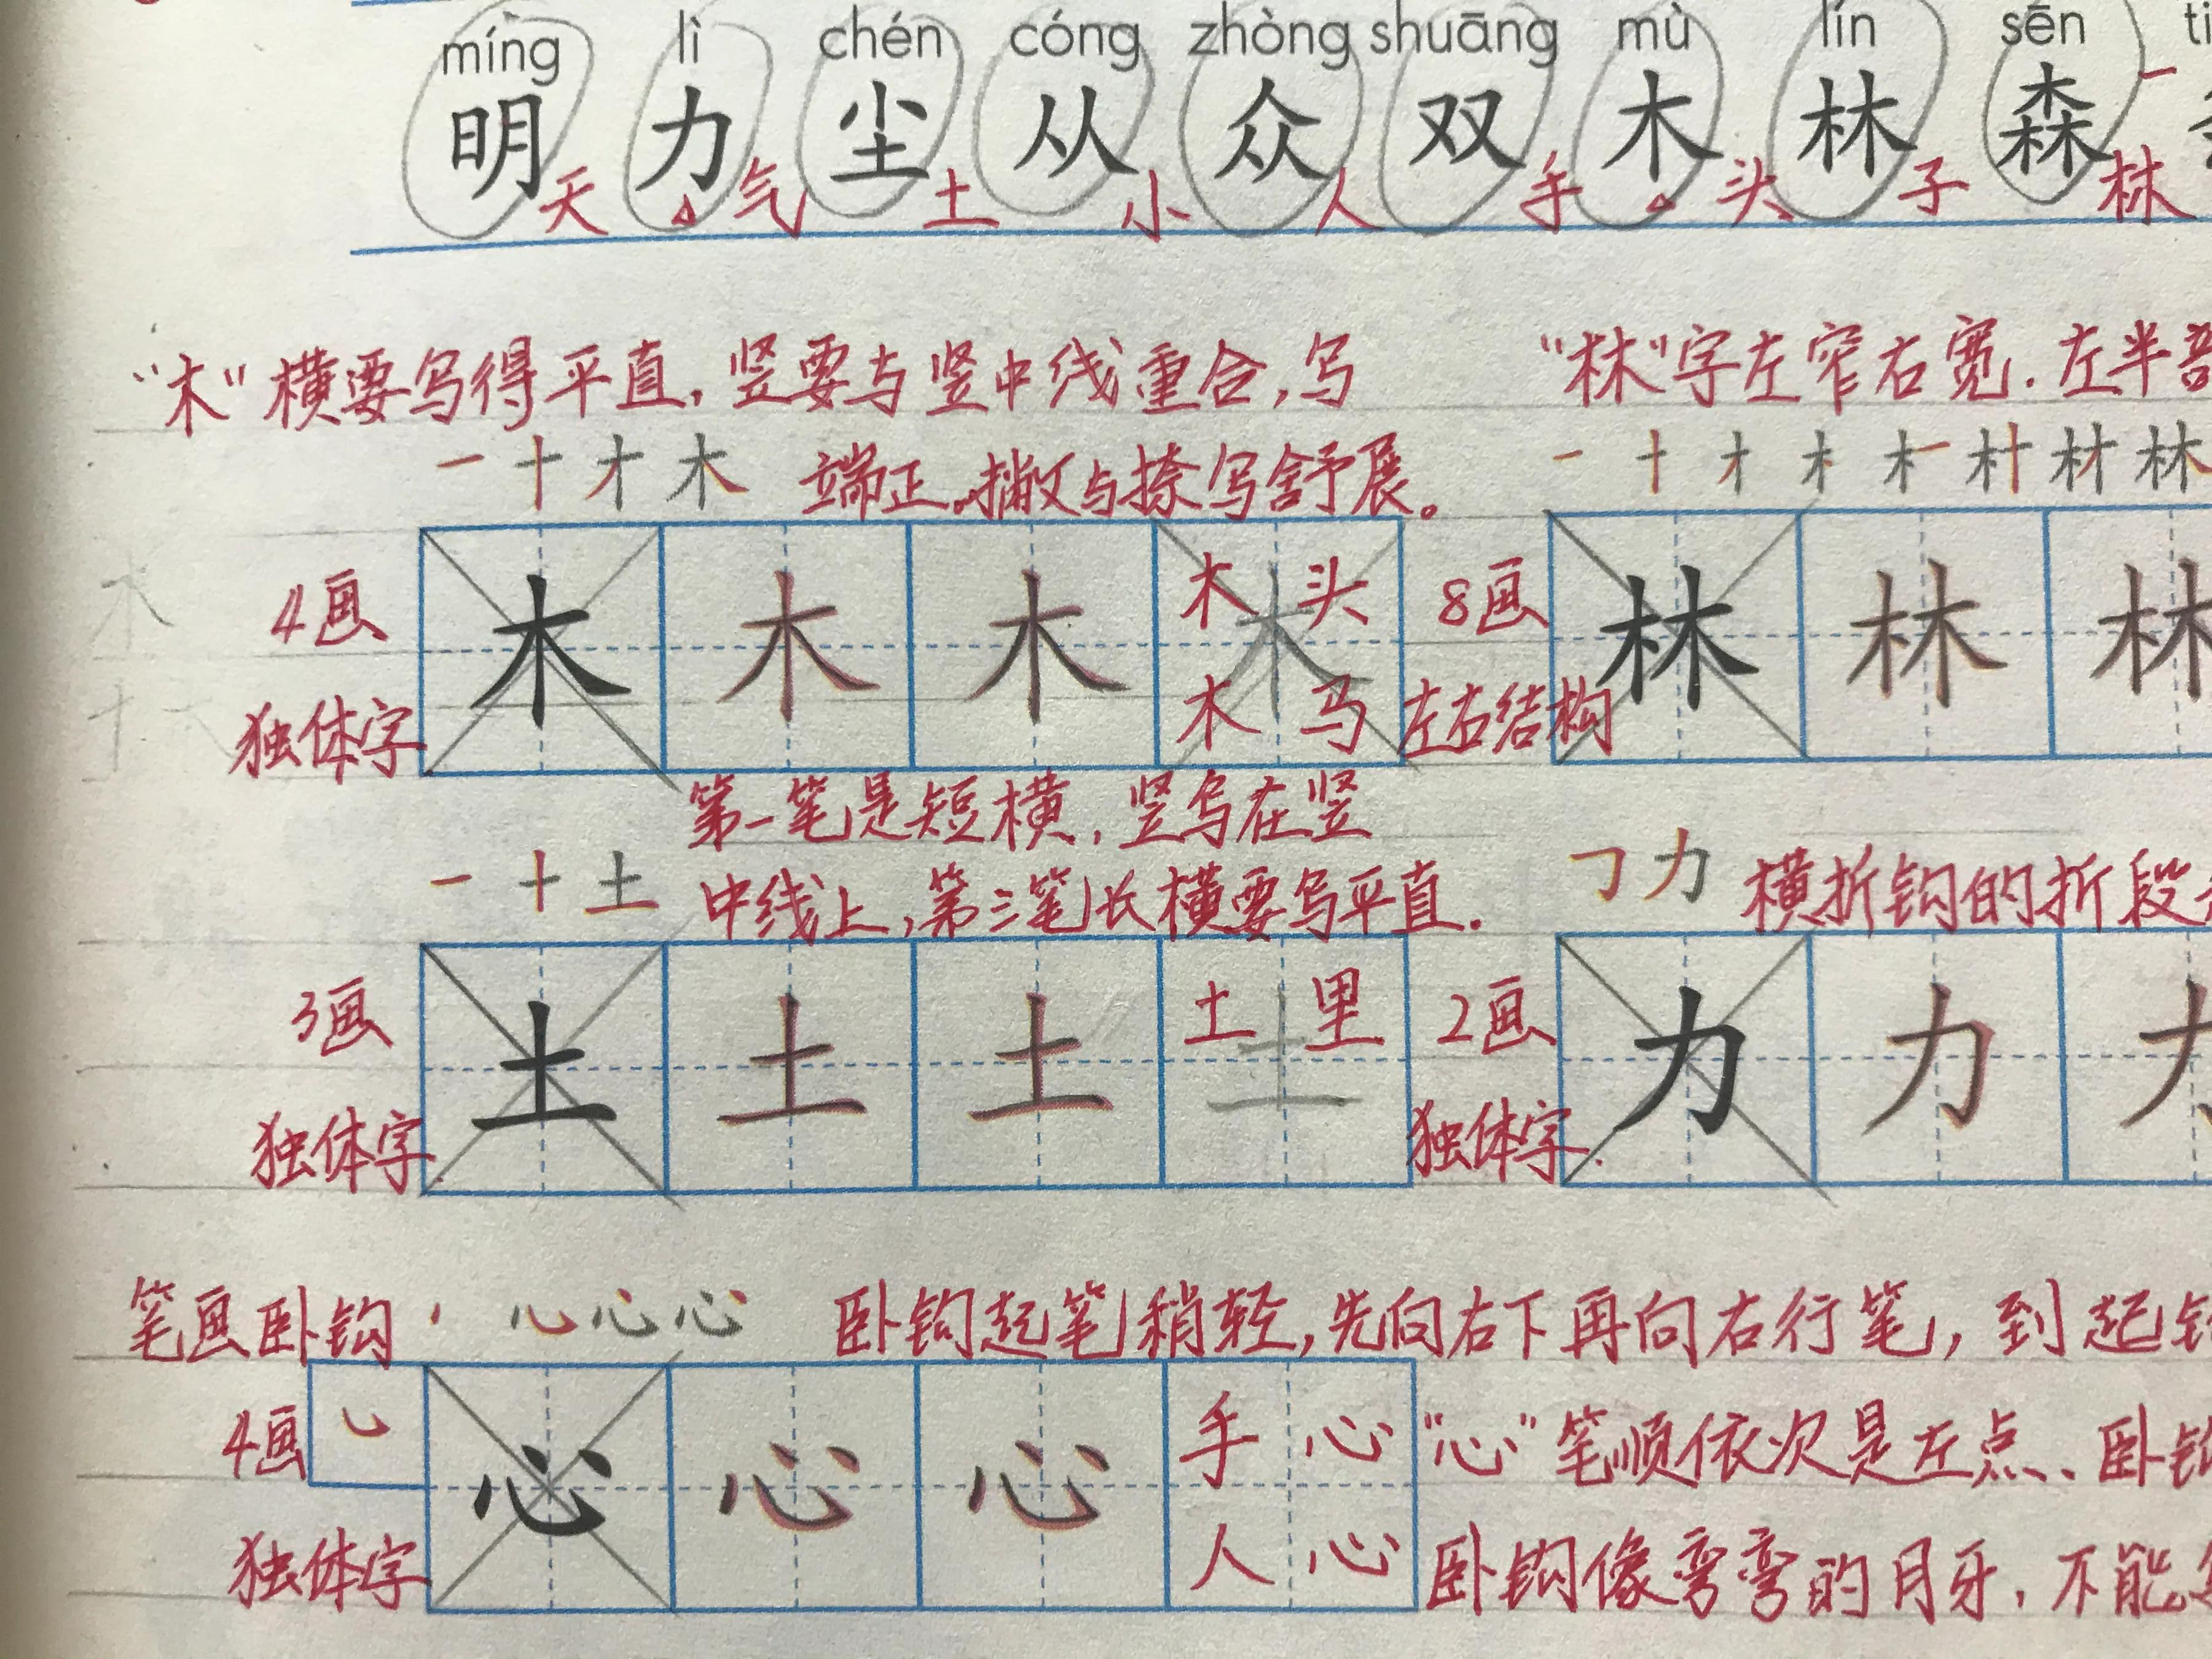 míng lì chén cóng zhòng shuāng mù lín sēn
明 力 尘 从 众 双 木 林 森
天 气 土 小 人 手 头 子 林
"木"横要写得平直,竖要与竖中线重合,写
端正。撇与捺写舒展。
"林"字左窄右宽.左半部
一 十 才 木
4画
独体字
木 木 木 木
木头
木马
8画
左右结构
林 林 林
第一笔是短横,竖写在竖
中线上,第三笔长横要写平直.
一 十 土
横折钩的折段
3画
独体字
土 土 土 土
土里
2画
独体字.
力 力 力
笔画卧钩
卧钩起笔稍轻,先向右下再向右行笔,到起
4画
独体字
心 心 心
手心
人心
"心"笔顺依次是左点、卧钩
卧钩像弯弯的月牙,不能